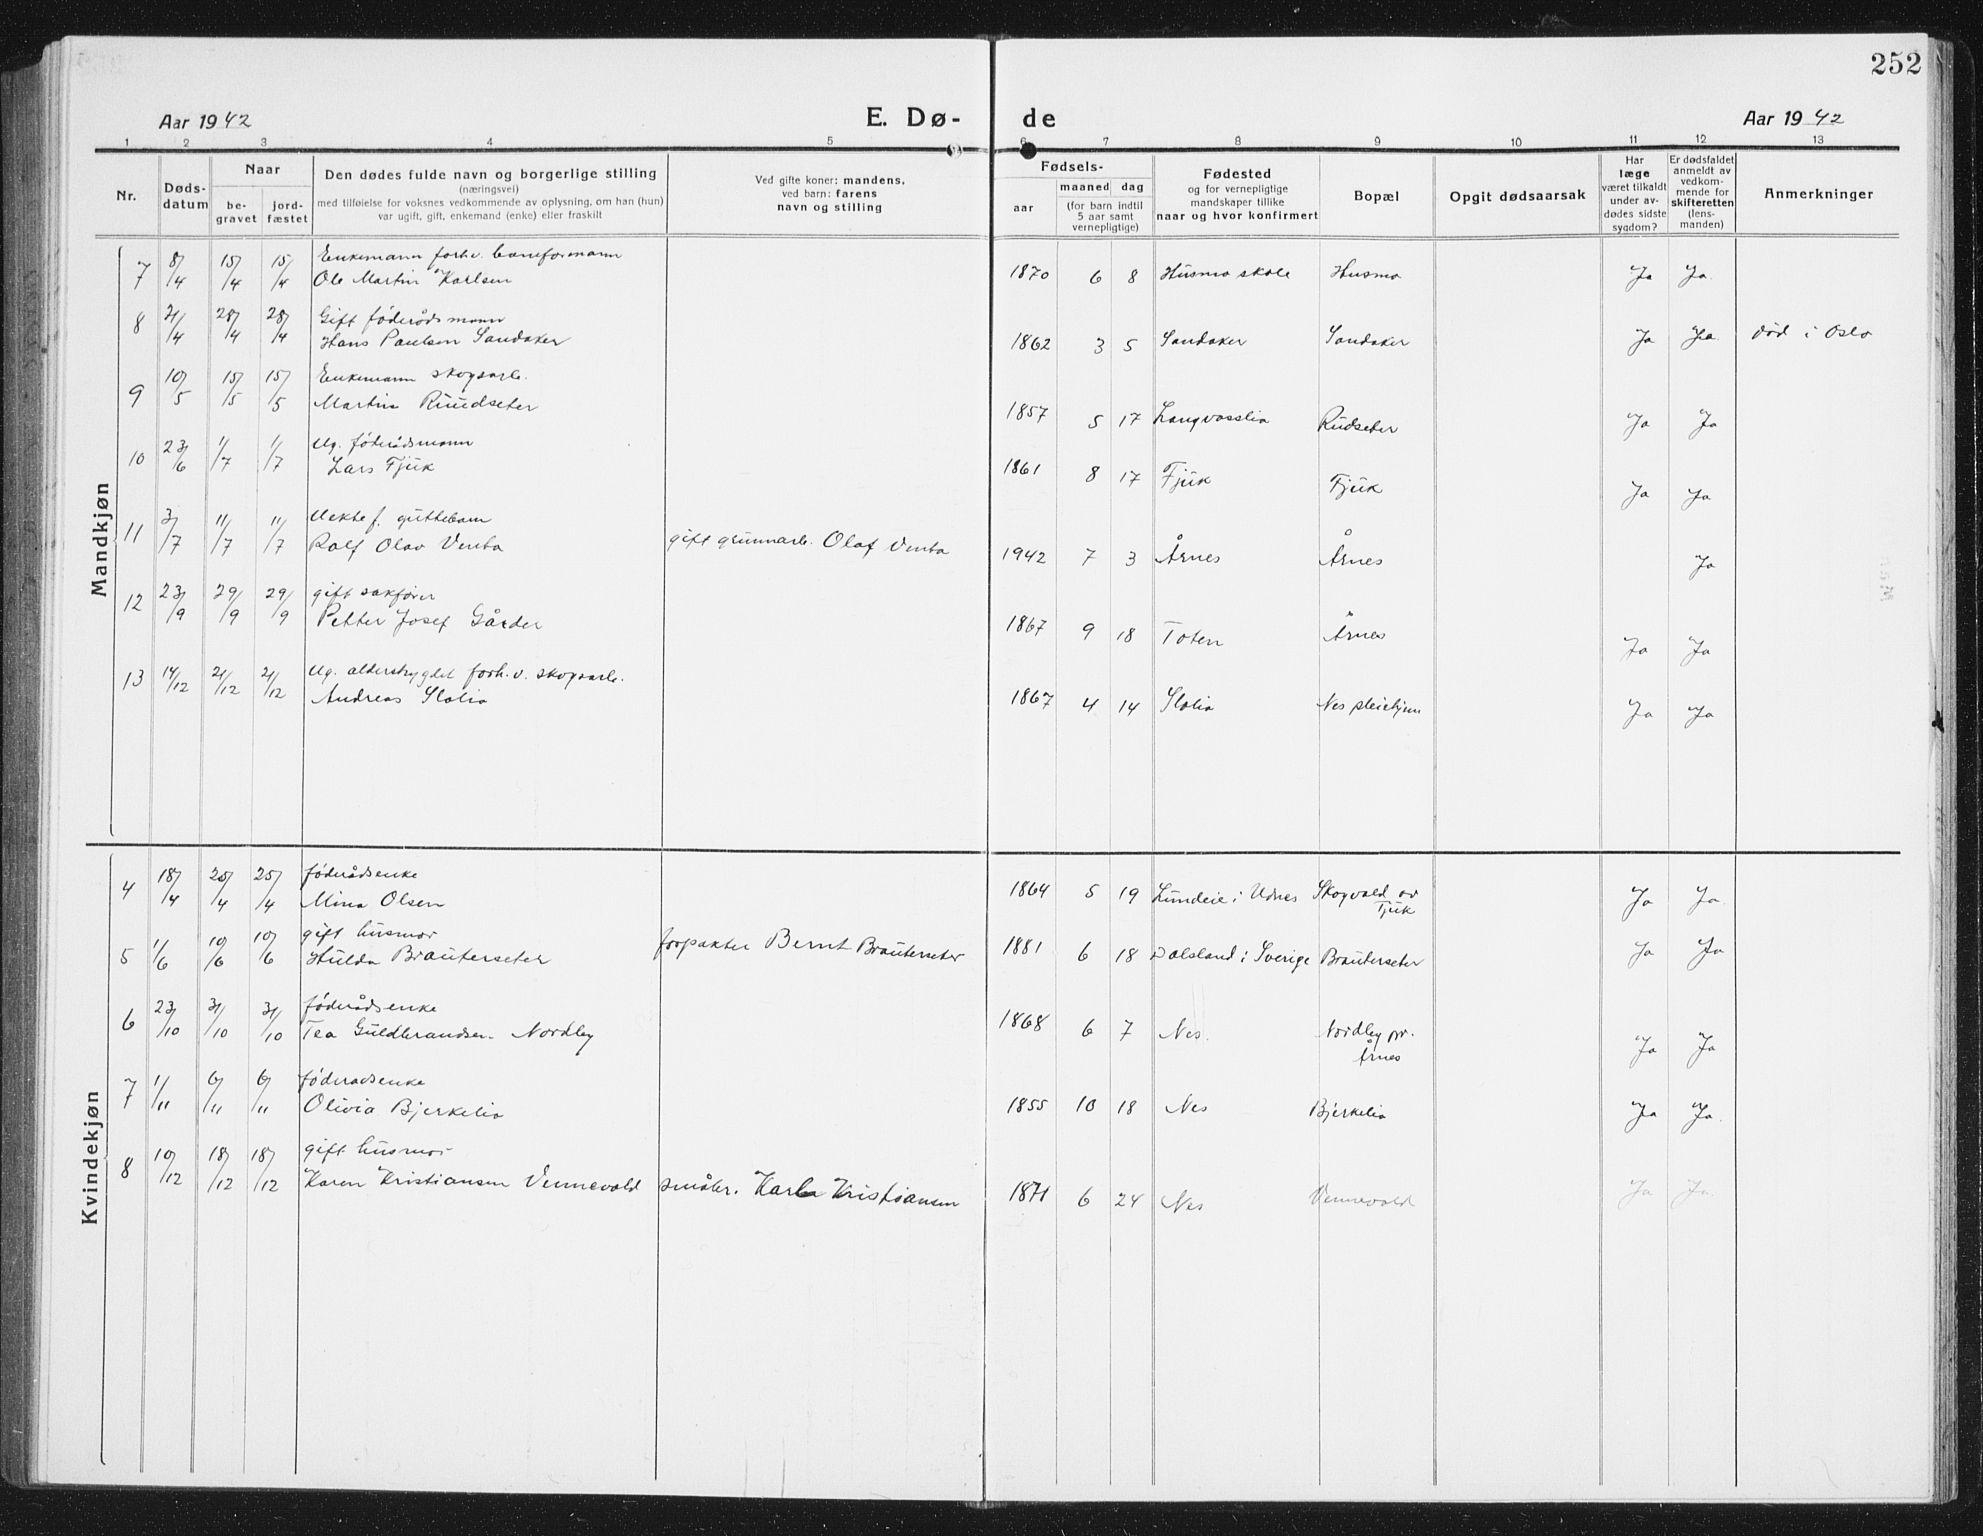 252
Aar 1942 E. Dø- de Aar 1942
1 2 3 4 5 6 7 8 9 10 11 12 13
Nr.
Døds-
datum
Naar
be-
gravet
jord-
fæstet
Den dødes fulde navn og borgerlige stilling
(næringsvei)
med tilføielse for voksnes vedkommende av oplysning, om han (hun)
var ugift, gift, enkemand (enke) eller fraskilt
Ved gifte koner: mandens,
ved barn: farens
navn og stilling
Fødsels-
aar
maaned dag
(for barn indtil
5 aar samt
vernepligtige)
Fødested
og for vernepligtige
mandskaper tillike
naar og hvor konfirmert
Bopæl
Opgit dødsaarsak
Har
læge
været tilkaldt
under av-
dødes sidste
sygdom?
Er dødsfaldet
anmeldt av
vedkom-
mende for
skifteretten
(lens-
manden)
Anmerkninger
Mandkjøn
Enkemann forhv. baneformann
7 8/4 15/4 15/4 Ole Martin Karlsen 1870 6 8 Husmo skole Husmo Ja Ja.
Gift føderådsmann
8 21/4 28/4 28/4 Hans Paulsen Sandaker 1862 3 5 Sandaker Sandaker Ja Ja død i Oslo
Enkemann skogsarb.
9 10/5 15/5 15/5 Martin Ruudseter 1857 5 17 Langvasslia Rudseter Ja Ja
Ug. føderådsmann
10 23/6 1/7 1/7 Lars Fjuk 1861 8 17 Fjuk Fjuk Ja Ja
Uekte f. guttebarn
11 3/7 11/7 11/7 Rolf Olav Venta gift grunnarb. Olaf Venta 1942 7 3 Årnes Årnes Ja
gift sakfører
12 23/9 29/9 29/9 Petter Josef Gårder 1867 9 18 Toten Årnes Ja Ja
Ug. alderstrygdet forh.v. skogsarb.
13 14/12 21/12 21/12 Andreas Slolia 1867 4 14 Slolia Nes pleiehjem Ja Ja
Kvindekjøn
føderådsenke
4 18/4 25/4 25/4 Mina Olsen 1864 5 19 Lundeie i Udnes Skogvold av
Fjuk Ja Ja.
gift husmor
5 1/6 10/6 10/6 Hulda Brauterseter forpakter Bernt Brauterseter 1881 6 18 Dalsland i Sverige Brauterseter Ja Ja
føderådsenke
6 23/10 31/10 31/10 Tea Guldbrandsen Nordby 1868 6 7 Nes. Nordby pr.
Årnes Ja Ja
føderadsenke
7 1/11 6/11 6/11 Olivia Bjerkelia 1855 10 18 Nes Bjerkelia Ja Ja.
gift husmor
8 10/12 18/12 18/12 Karen Kristiansen Vennevold småbr. Karl Kristiansen 1871 6 24 Nes Vennevold Ja Ja